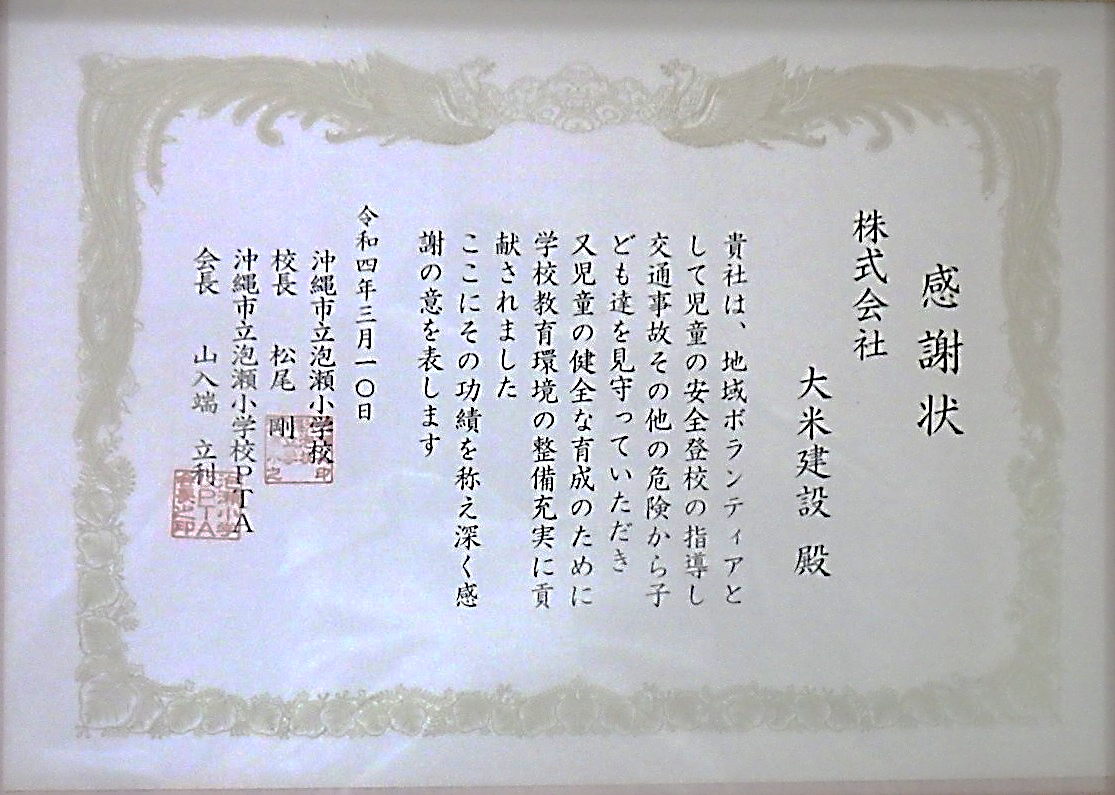 感謝状
株式会社
大米建設 殿
貴社は、地域ボランティアと
して児童の安全登校の指導し
交通事故その他の危険から子
ども達を見守っていただき
又児童の健全な育成のために
学校教育環境の整備充実に貢
献されました
ここにその功績を称え深く感
謝の意を表します
令和四年三月一〇日
沖縄市立泡瀬小学校
校長 松尾 剛
沖縄市立泡瀬小学校PTA
会長 山入端 立利